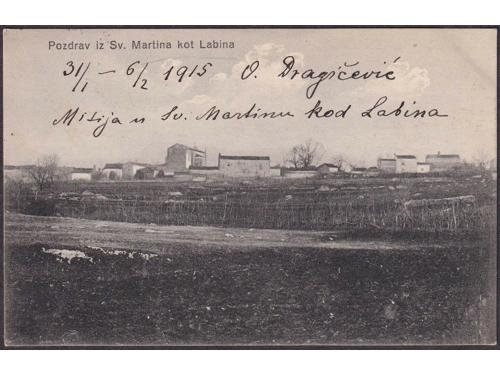 Pozdrav iz Sv. Martina kot Labina
31/1 – 6/2 1915 O. Dragičević
Misija u Sv. Martinu kod Labina